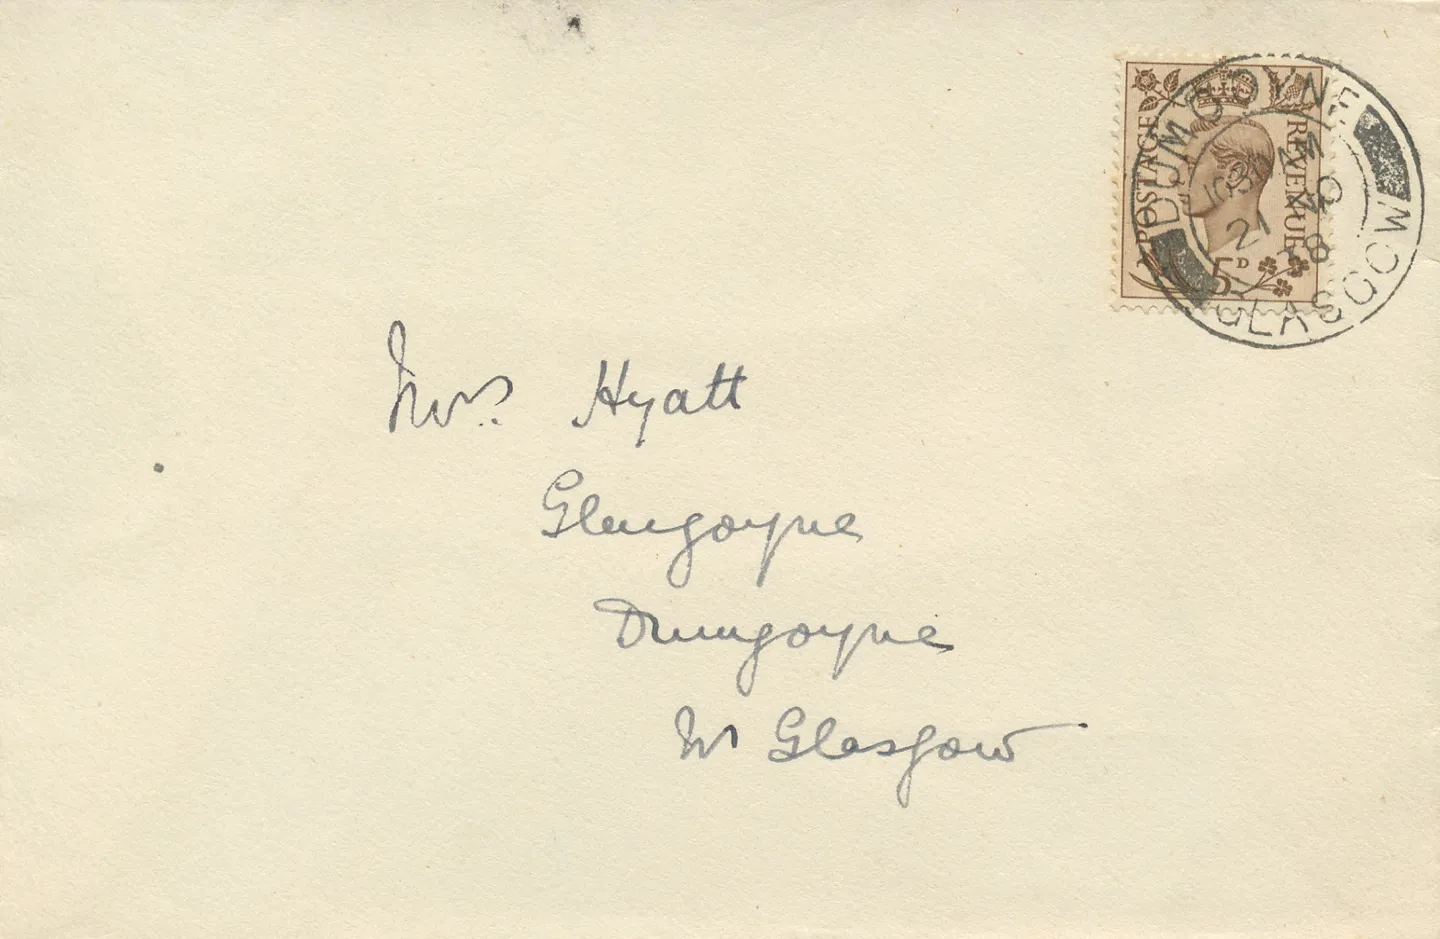 POSTAGE
REVENUE
5D
DUMGOYNE
21
38
GLASGOW
Mrs. Hyatt
Glengoyne
Dumgoyne
Nr Glasgow